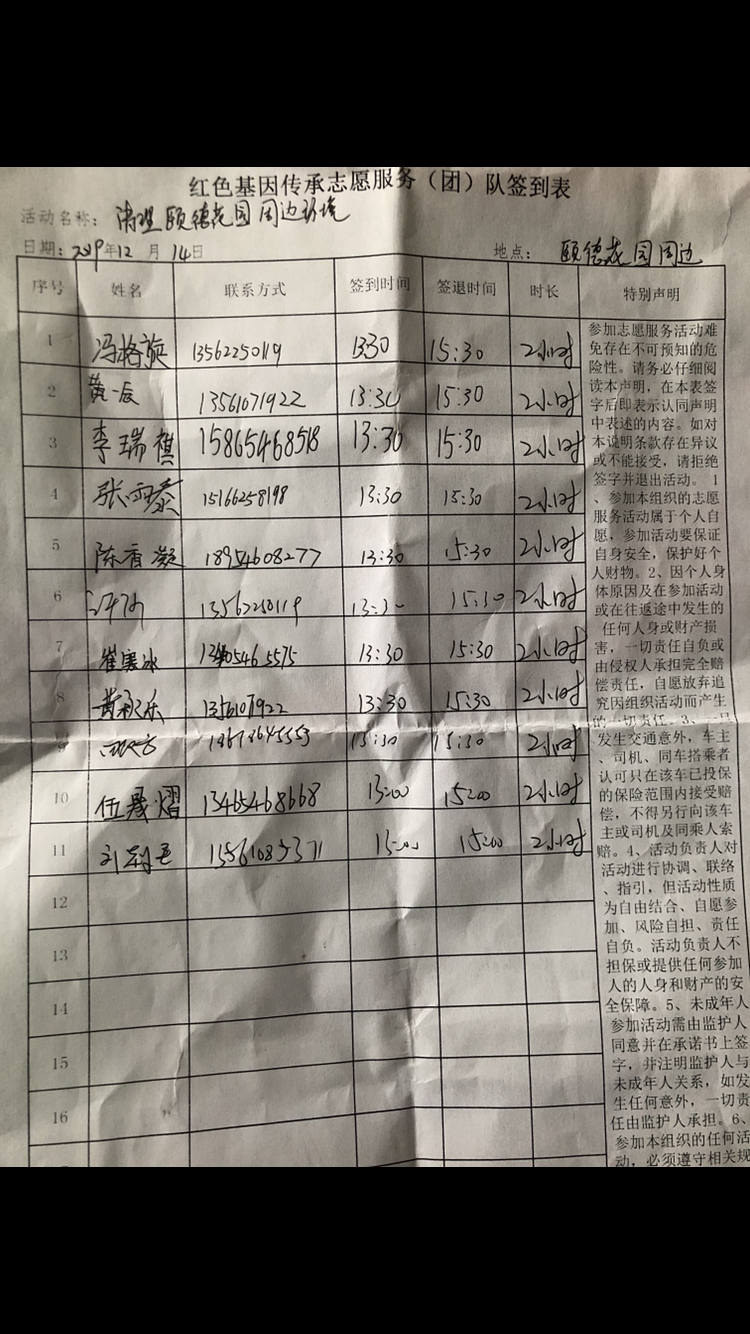 红色基因传承志愿服务（团）队签到表
活动名称：清理颐德花园周边环境
日期：2019年12月14日 地点：颐德花园周边
序号 姓名 联系方式 签到时间 签退时间 时长 特别声明
1 冯格旋 13562250119 13:30 15:30 2小时
2 黄一辰 13561071922 13:30 15:30 2小时
3 李瑞祺 15865468518 13:30 15:30 2小时
4 张雨泰 15166258198 13:30 15:30 2小时
5 陈香凝 18954608277 13:30 15:30 2小时
6 13562250119 13:30 15:30 2小时
7 崔寒冰 13:30 15:30 2小时
8 黄 乐 13:30 15:30 2小时
9 15:30 2小时
10 伍晟熠 13465468668 13:00 15:00 2小时
11 刘 15:00 2小时
12
13
14
15
16
参加志愿服务活动难
免存在不可预知的危
险性。请务必仔细阅
读本声明，在本表签
字后即表示认同声明
中表述的内容。如对
本说明条款存在异议
或不能接受，请拒绝
签字并退出活动。 1
、参加本组织的志愿
服务活动属于个人自
愿，参加活动要保证
自身安全，保护好个
人财物。2、因个人身
体原因及在参加活动
或在往返途中发生的
任何人身或财产损
害，一切责任自负或
由侵权人承担完全赔
偿责任，自愿放弃追
究因组织活动而产生
的一切责任。3、一旦
发生交通意外，车主
、司机、同车搭乘者
认可只在该车已投保
的保险范围内接受赔
偿，不得另行向该车
主或司机及同乘人索
赔。4、活动负责人对
活动进行协调、联络
、指引，但活动性质
为自由结合、自愿参
加、风险自担、责任
自负。活动负责人不
担保或提供任何参加
人的人身和财产的安
全保障。5、未成年人
参加活动需由监护人
同意并在承诺书上签
字，并注明监护人与
未成年人关系，如发
生任何意外，一切责
任由监护人承担。6、
参加本组织的任何活
动，必须遵守相关规